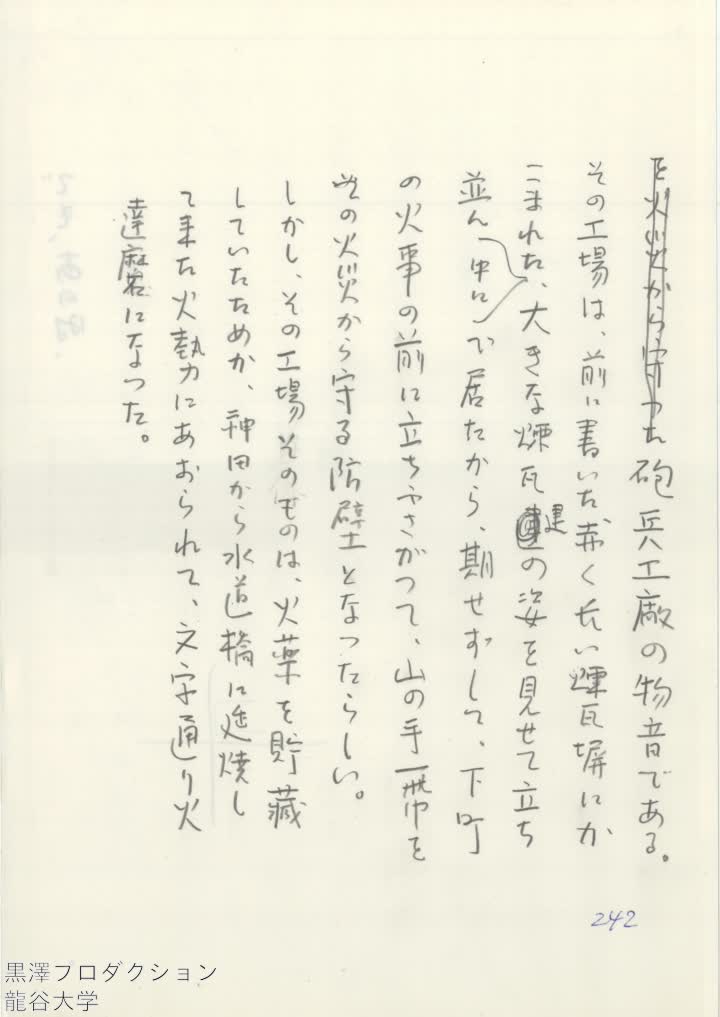 を火災から守った砲兵工廠の物音である。
その工場は、前に書いた赤く長い煉瓦塀にか
こまれた、大きな煉瓦建の姿を見せて立ち
並んで居たから、期せずして、下町
中に
の火事の前に立ちふさがつて、山の手一帯を
その火災から守る防壁となつたらしい。
しかし、その工場そのものは、火薬を貯蔵
していたためか、神田から水道橋に延焼し
て来た火勢力にあおられて、文字通り火
達磨になつた。
242
黒澤プロダクション
龍谷大学